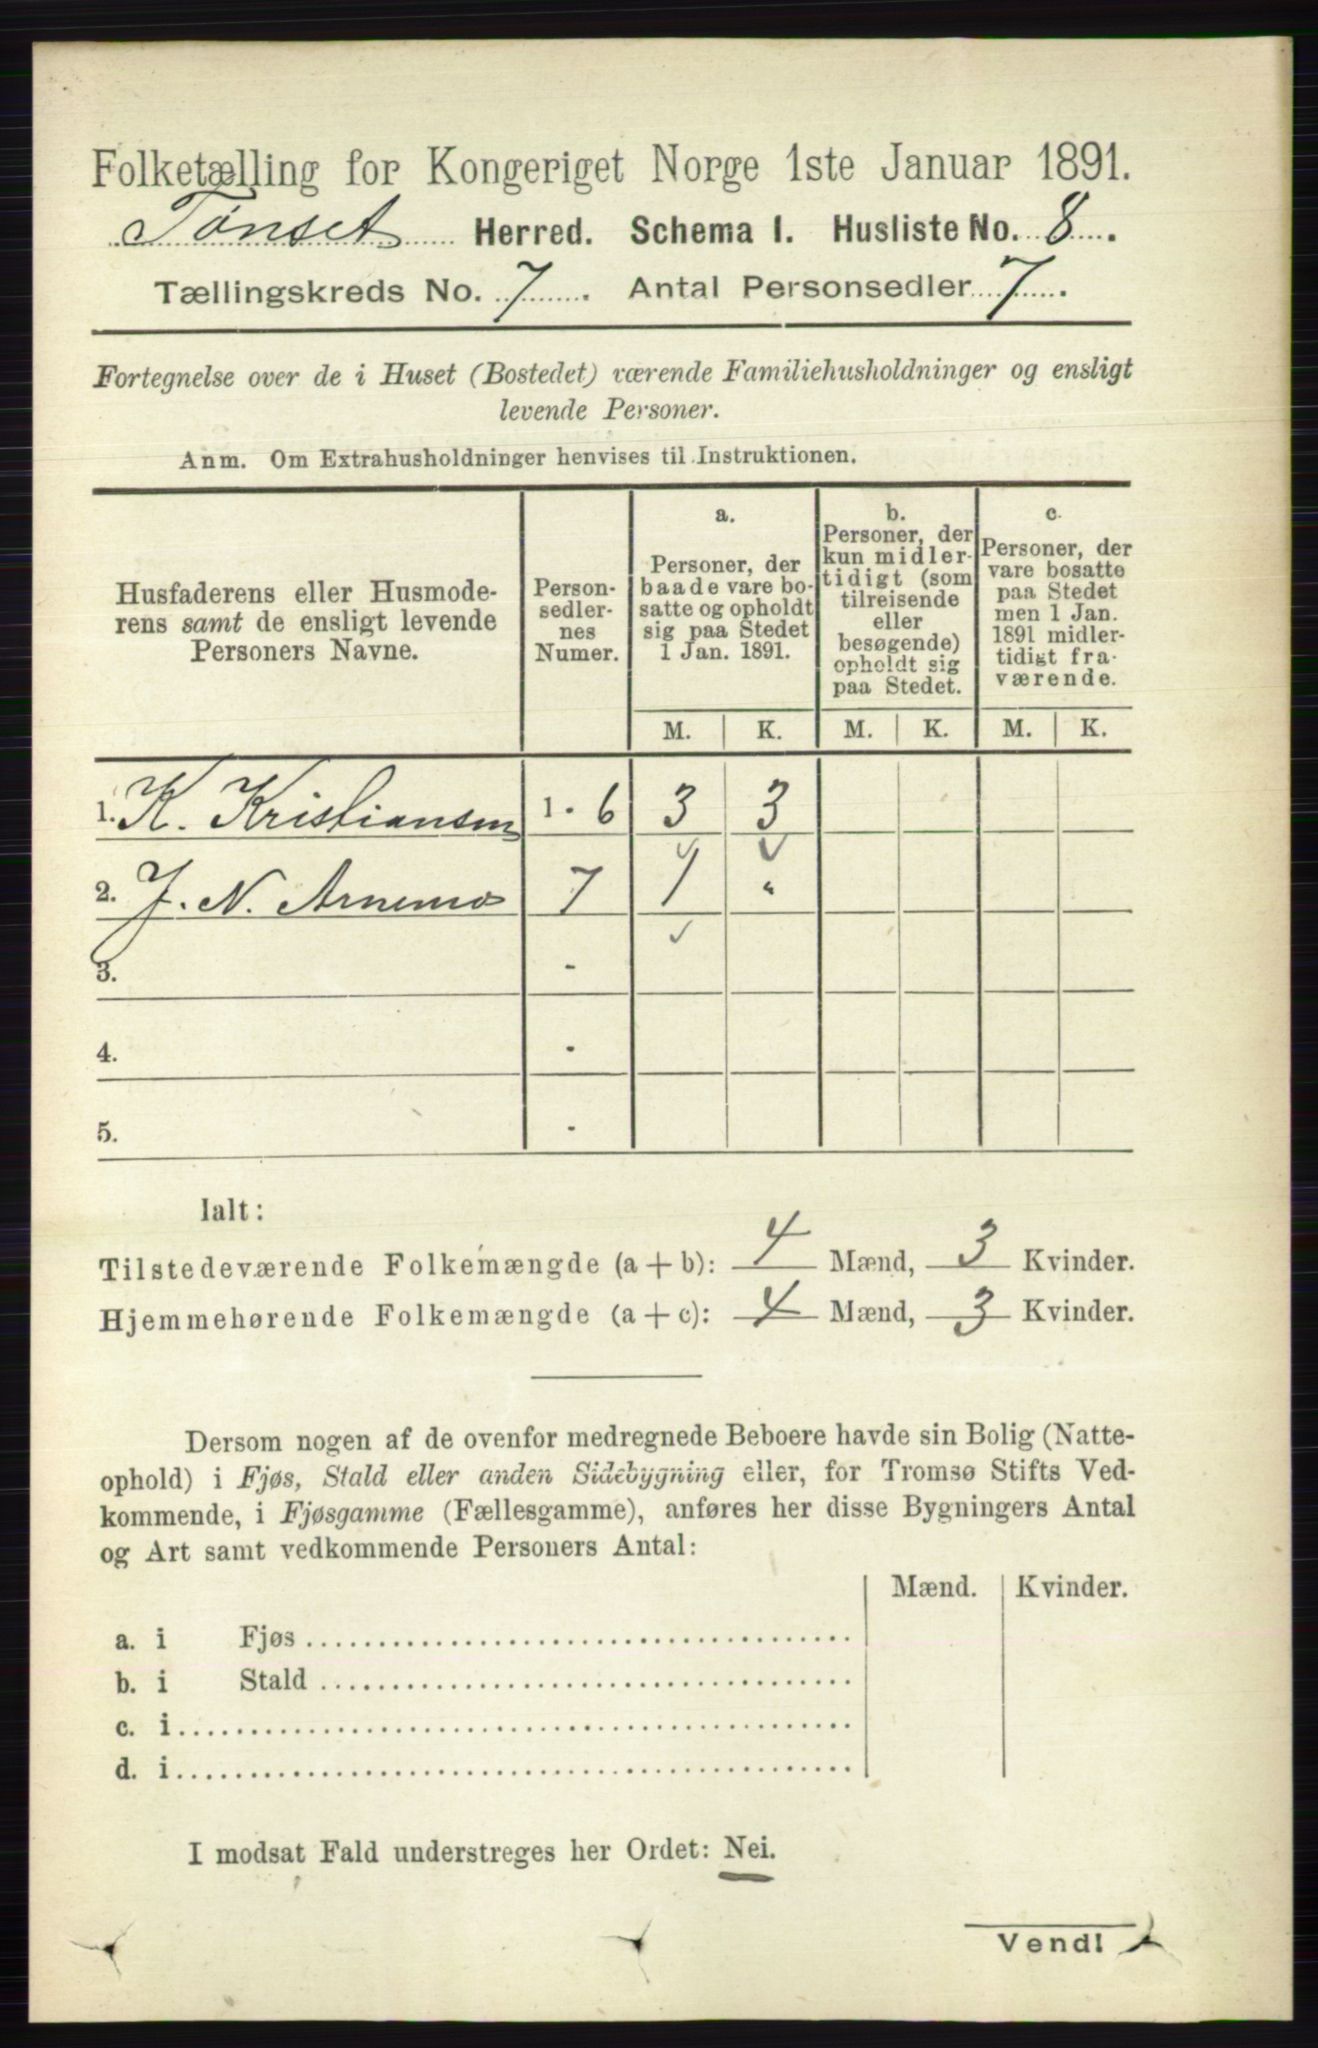 Folketælling for Kongeriget Norge 1ste Januar 1891.
Tønset Herred. Schema I. Husliste No. 8.
Tællingskreds No. 7. Antal Personsedler 7.
Fortegnelse over de i Huset (Bostedet) værende Familiehusholdninger og ensligt
levende Personer.
Anm. Om Extrahusholdninger henvises til Instruktionen.
Husfaderens eller Husmode-
rens samt de ensligt levende
Personers Navne.
Person-
sedler-
nes
Numer.
a.
Personer, der
baade vare bo-
satte og opholdt
sig paa Stedet
1 Jan. 1891.
b.
Personer, der
kun midler-
tidigt (som
tilreisende
eller
besøgende)
opholdt sig
paa Stedet.
c.
Personer, der
vare bosatte
paa Stedet
men 1 Jan.
1891 midler-
tidigt fra-
værende.
M. K. M. K. M. K.
1. K. Kristiansen 1 - 6 3 3
2. J. N. Arnemo 7 1 "
3. -
4. -
5. -
Ialt:
Tilstedeværende Folkemængde (a + b): 4 Mænd, 3 Kvinder.
Hjemmehørende Folkemængde (a + c): 4 Mænd, 3 Kvinder.
Dersom nogen af de ovenfor medregnede Beboere havde sin Bolig (Natte-
ophold) i Fjøs, Stald eller anden Sidebygning eller, for Tromsø Stifts Ved-
kommende, i Fjøsgamme (Fællesgamme), anføres her disse Bygningers Antal
og Art samt vedkommende Personers Antal:
Mænd. Kvinder.
a. i Fjøs
b. i Stald
c. i
d. i
I modsat Fald understreges her Ordet: Nei.
Vend!